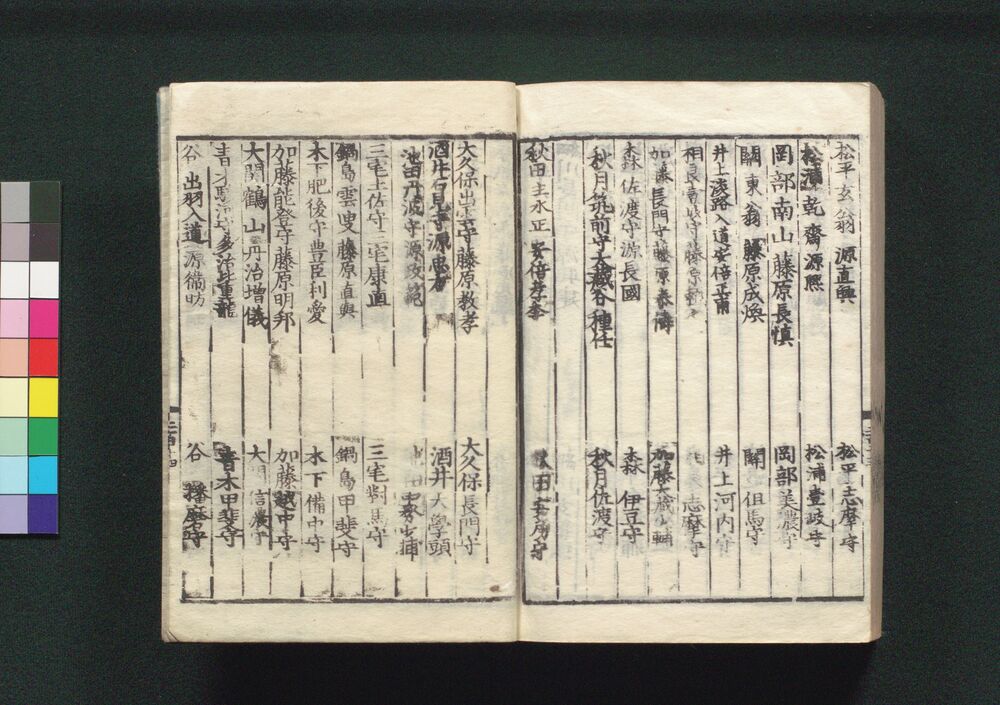 松平玄翁 源直興 松平志摩守
松浦乾齋 源熈 松浦壹岐守
岡部南山 藤原長慎 岡部美濃守
關東翁 藤原成煥 關 但馬守
井上淡路入道 安倍正甫 井上河内守
相良壹岐守 藤原 志摩守
加藤長門守 藤原泰儔 加藤大蔵少輔
森佐渡守 源長國 森 伊豆守
秋月筑前守 大蔵谷種任 秋月佐渡守
秋田主水正 安倍孝季 秋田安房守
大久保出雲守 藤原教孝 大久保長門守
酒井石見守 源忠方 酒井大學頭
池田丹波守 源政範
三宅土佐守 三宅康直 三宅對馬守
鍋島雲叟 藤原直與 鍋島甲斐守
木下肥後守 豊臣利愛 木下備中守
加藤能登守 藤原明邦 加藤越中守
大関鶴山 丹治増儀 大関信濃守
青木駿河守 多治比重龍 青木甲斐守
谷 出羽入道 源衛昉 谷 播磨守